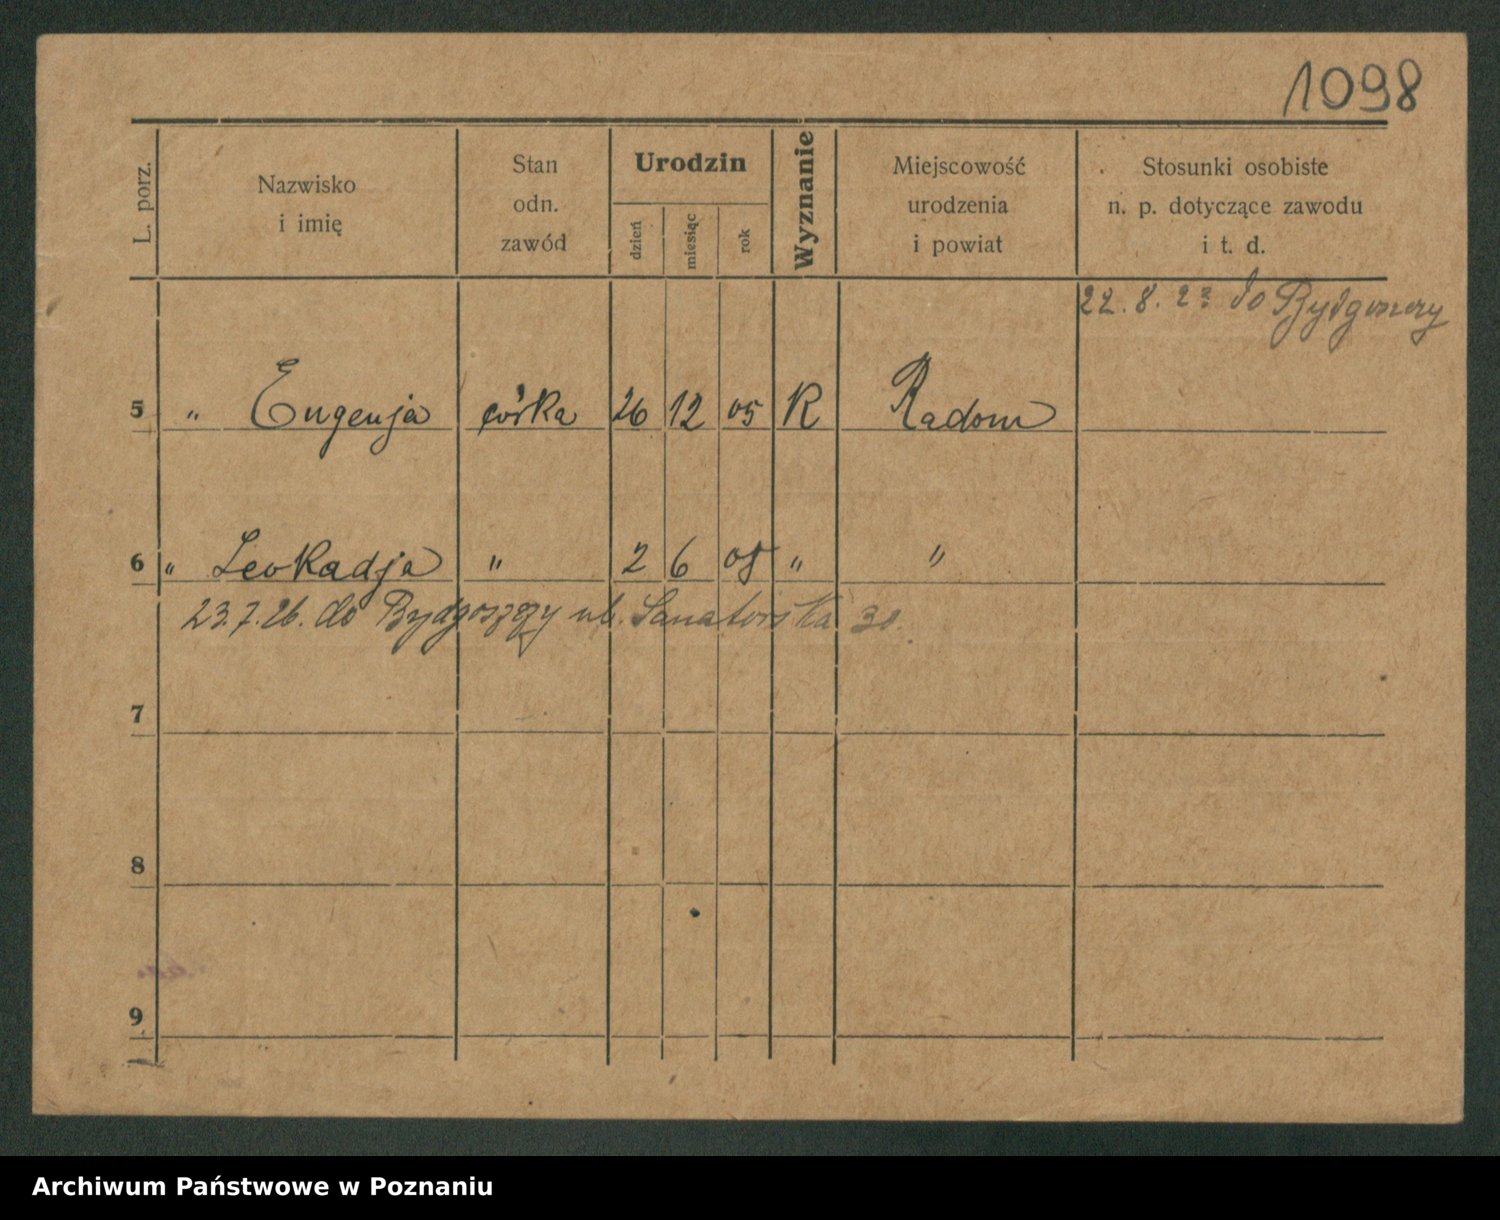 1098
L. porz.
Nazwisko
i imię
Stan
odn.
zawód
Urodzin
dzień
miesiąc
rok
Wyznanie
Miejscowość
urodzenia
i powiat
Stosunki osobiste
n. p. dotyczące zawodu
i t. d.
22. 8. 23 do Bydgoszczy
5 " Eugenja córka 26 12 05 R Radom
6 " Leokadja " 2 6 08 " "
23.7.26. do Bydgoszczy ul. Sanatorska 30.
7
8
9
Archiwum Państwowe w Poznaniu